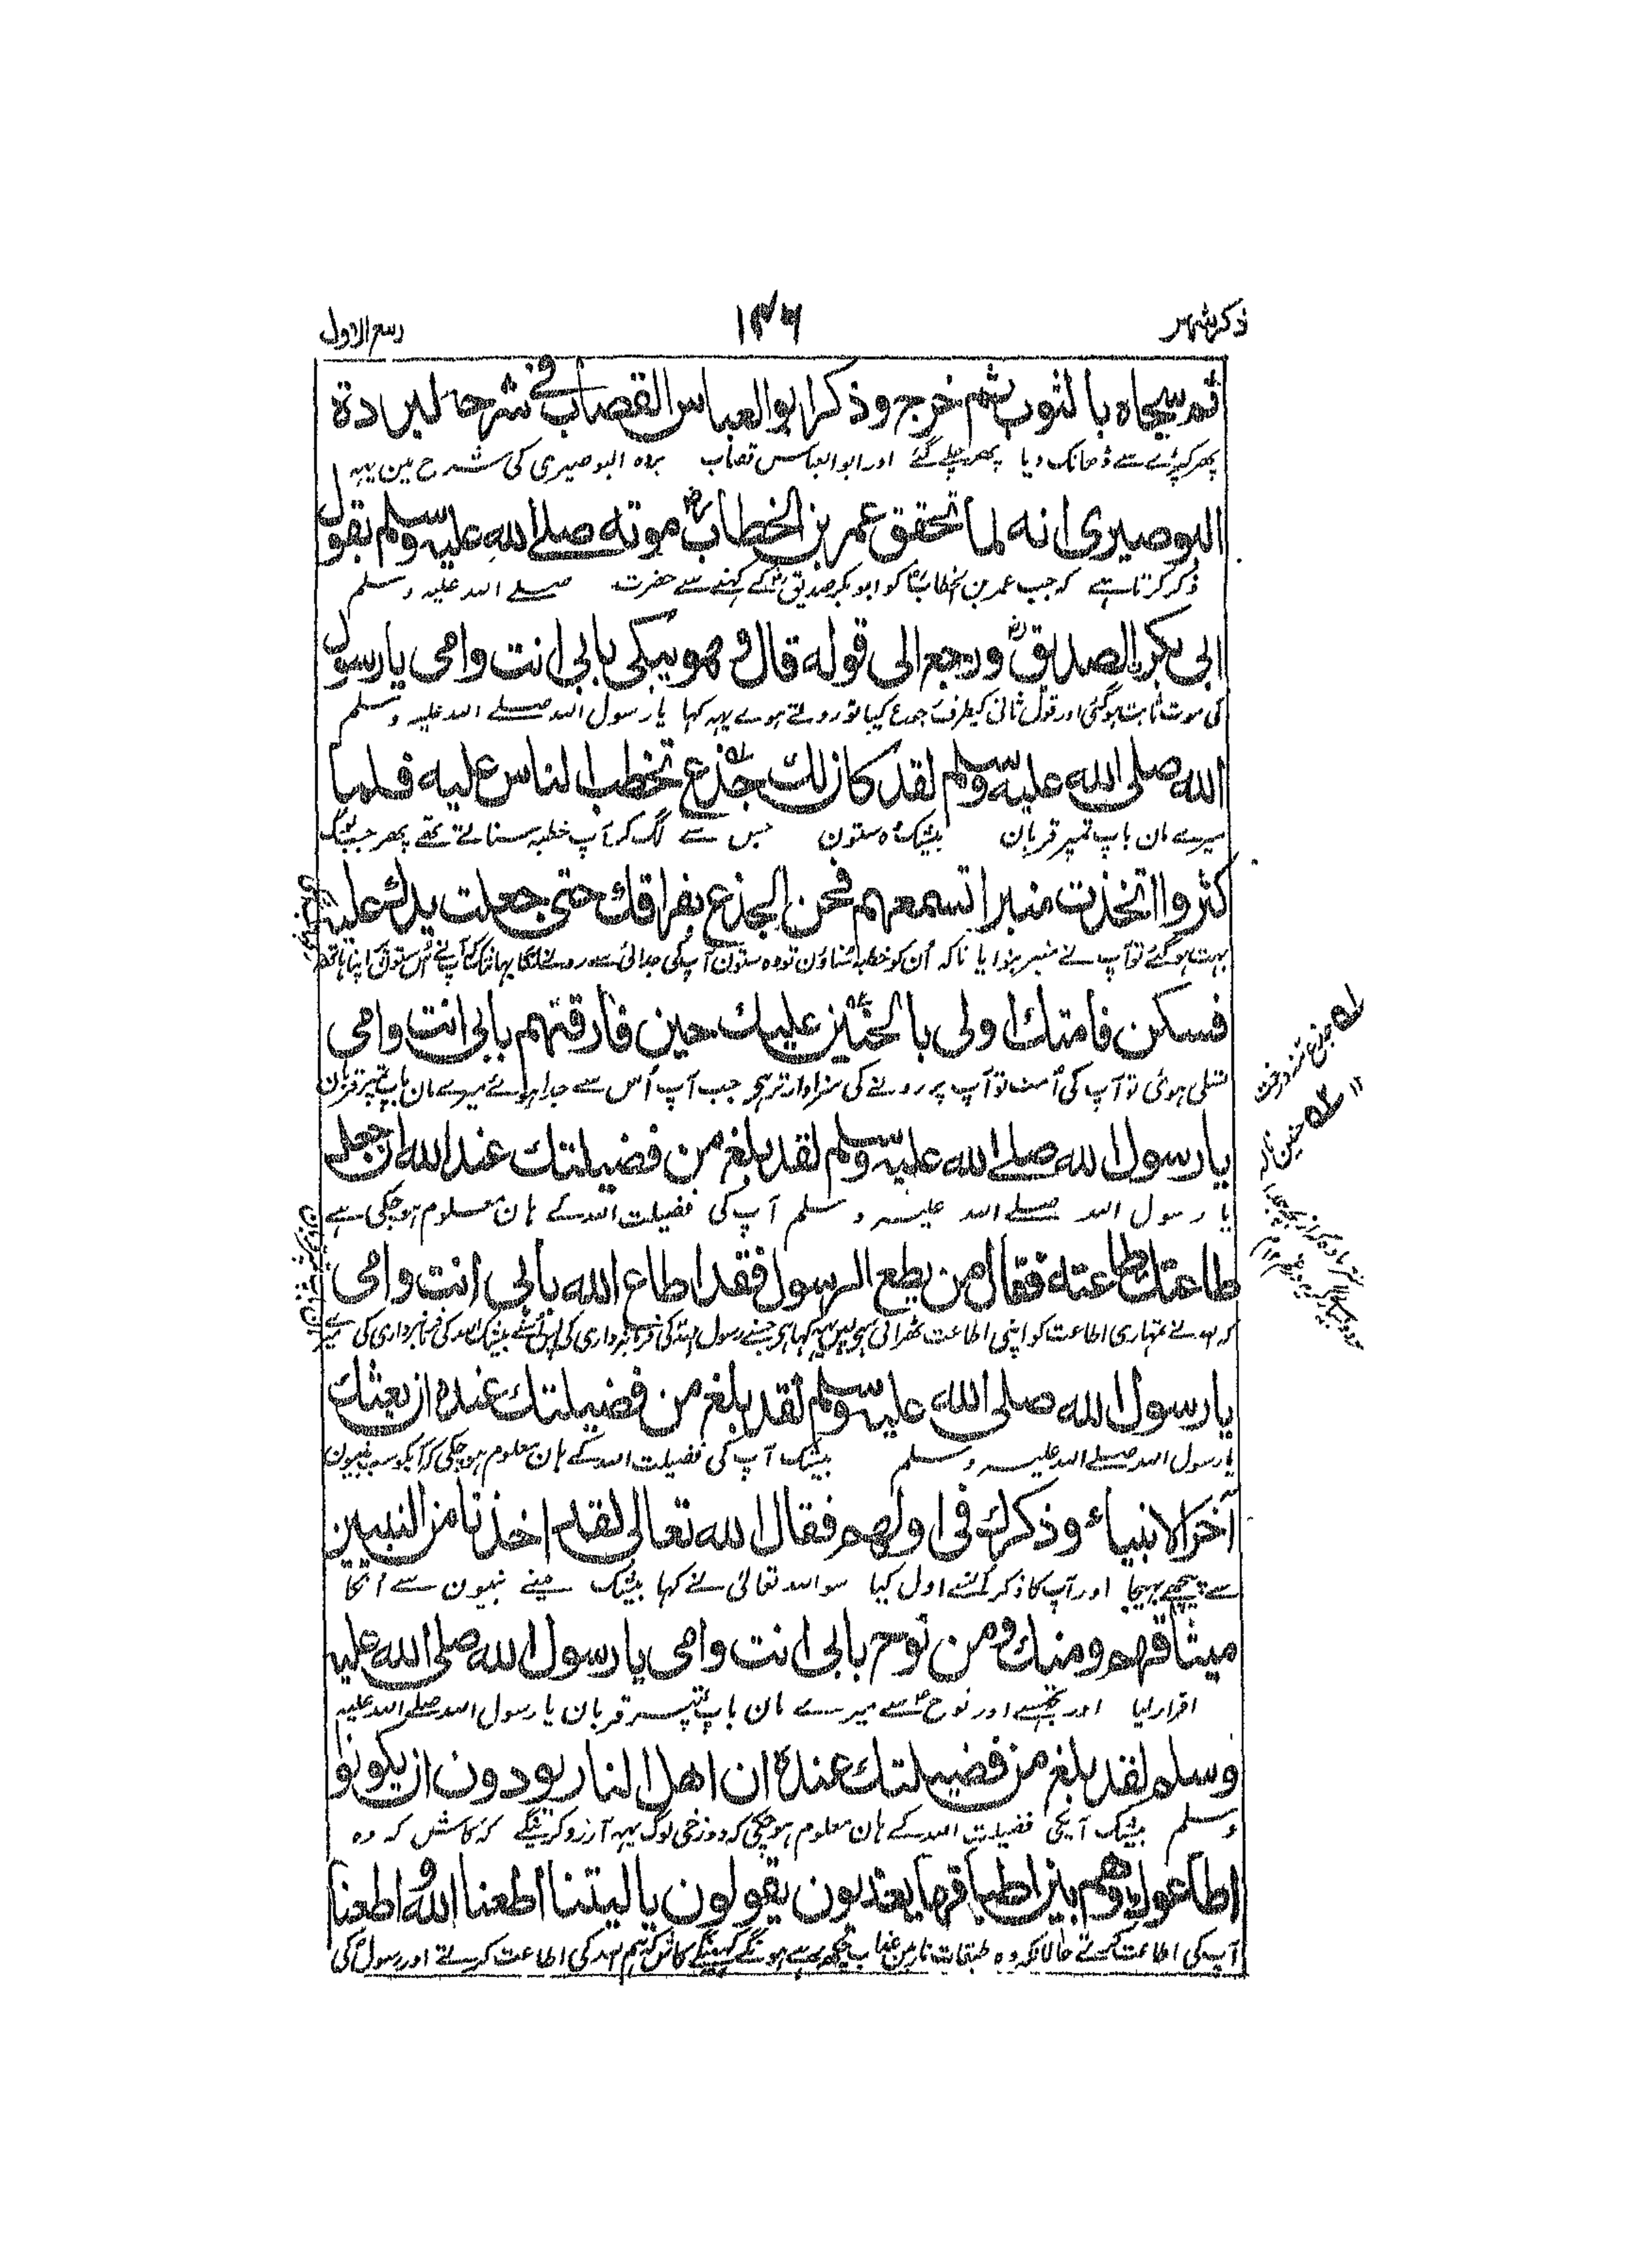 ذکر شہر
۱۴۶
ربیع الاول
ثم سجاه بالثوب ثم خرج وذكر ابو العباس القصاب في شرحه لبردة
پھر کپڑے سے ڈھانک دیا پھر چلے گئے اور ابو العباس قصاب بردہ البوصیری کی شرح مین یہہ
البوصيرى انه لما تحقق عمر بن الخطاب رض موته صلى الله عليه وسلم بقول
ذکر کرتا ہے کہ جب عمر بن الخطاب کو ابوبکر صدیق کے کہنے سے حضرت صلے اللہ علیہ وسلم
ابى بكر الصديق رض ورجع الى قوله قال وهو يبكى بابى انت وامى يا رسول
کی موت ثابت ہوگئی اور قول ثانی کیطرف رجوع کیا تو روتے ہوے یہہ کہا یا رسول اللہ صلے اللہ علیہ وسلم
الله صلى الله عليه وسلم لقد كان لك جذع تخطب الناس عليه فلما
میرے مان باپ تمپر قربان بیشک وہ ستون جس سے لگ کر آپ خطبہ سناتے تھے پھر جب لوگ
كثروا اتخذت منبرا تسمعهم فحن الجذع بفراقك حتى جعلت يدك عليه
بہت ہوگئے تو آپ نے منبر بنوایا تاکہ اُن کو خطبہ سناؤن تو وہ ستون آپ کی جدائی سے رونے لگا یہانتک کہ آپ نے اُس ستون پر اپنا ہاتھ
فسكن فامتك اولى بالحنين عليك حين فارقتهم بابى انت وامى
تسلی ہوئی تو آپ کی اُمت تو آپ پر رونے کی سزاوار تر ہی جب آپ اُس سے جدا ہوئے میرے مان باپ تمپر قربان
يا رسول الله صلے الله عليه وسلم لقد بلغ من فضيلتك عند الله ان جعل
یا رسول اللہ صلے اللہ علیہ وسلم آپ کی فضیلت اللہ کے ہان معلوم ہوچکی ہے
طاعتك طاعته فقال من يطع الرسول فقد اطاع الله بابى انت وامى
کہ اللہ نے تمہاری اطاعت کو اپنی اطاعت ٹھرائی ہی پس یہہ کہا ہی جسنے رسول اللہ کی فرمانبرداری کی اُسنے بیشک اللہ کی فرمانبرداری کی
يا رسول الله صلى الله عليه وسلم لقد بلغ من فضيلتك عنده ان بعثك
یا رسول اللہ صلے اللہ علیہ وسلم بیشک آپ کی فضیلت اللہ کے ہان معلوم ہوچکی کہ آپکو سب نبیون
آخر الانبياء وذكرك فى اولهم فقال الله تعالى لقد اخذنا من النبيين
سے پیچھے بھیجا اور آپ کا ذکر اُنسے اول کیا سو اللہ تعالی نے کہا بیشک مینے نبیون سے اُنکا
ميثاقهم ومنك ومن نوح بابى انت وامى يا رسول الله صلى الله عليه
اقرار لیا اور تجھسے اور نوح سے میرے مان باپ تمپر قربان یا رسول اللہ صلے اللہ علیہ
وسلم لقد بلغ من فضيلتك عنده ان اهل النار يودون ان يكونوا
وسلم بیشک آپکی فضیلت اللہ کے ہان معلوم ہوچکی کہ دوزخی لوگ یہہ آرزو کرینگے کہ کاش کہ وہ
اطاعوك وهم بين اطباقها يعذبون يقولون يا ليتنا اطعنا الله واطعنا
آپ کی اطاعت کرتے حالانکہ وہ طبقات نار مین عذاب ہونگے کہینگے کاش کہ ہم اللہ کی اطاعت کرتے اور رسول کی
جذع تنہ درخت
۱۲ حنین نالہ